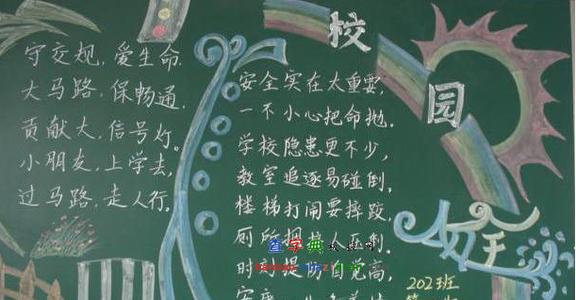 守交规，爱生命.
大马路，保畅通.
贡献大，信号灯。
小朋友，上学去，
过马路，走人行。
校园
安全
安全实在太重要，
一不小心把命抛.
学校隐患更不少，
教室追逐易碰倒.
楼梯打闹要摔跤，
厕所拥挤人
时刻提 自觉高，
查字典
202班